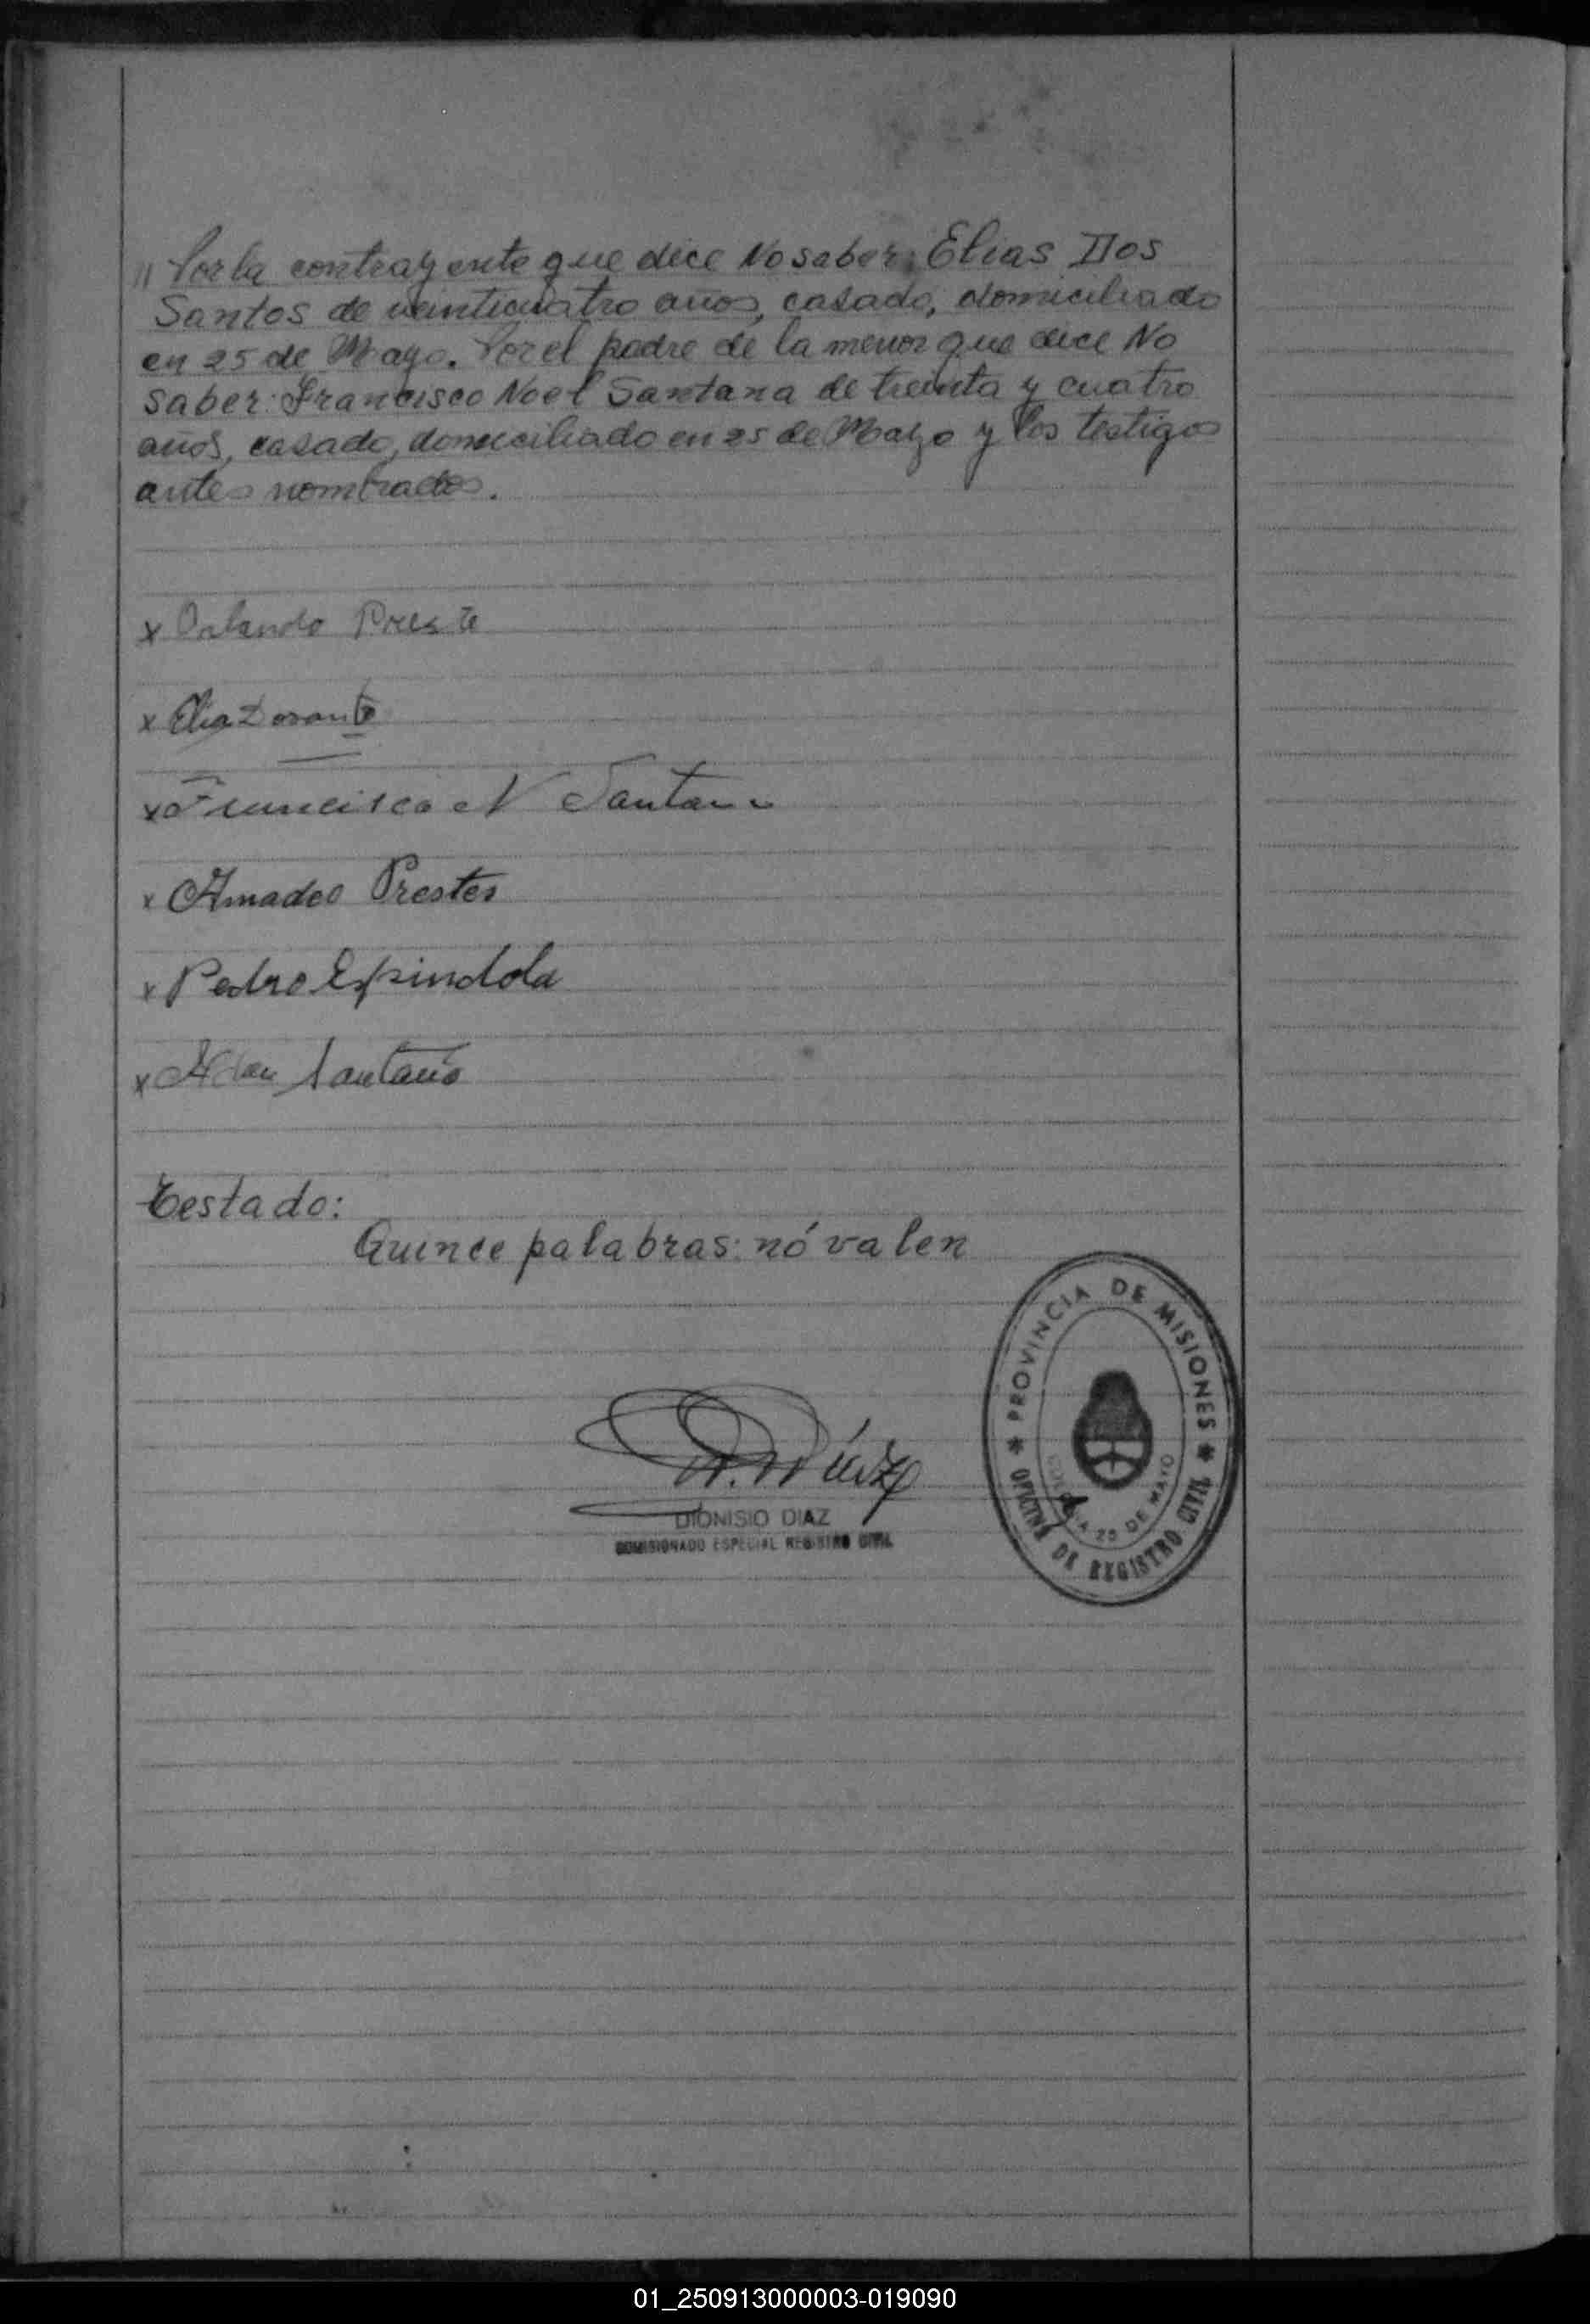 // Por la contrayente que dice No saber: Elias Dos
Santos de veinticuatro años, casado, domiciliado
en 25 de Mayo. Por el padre de la menor que dice No
saber: Francisco Noel Santana de treinta y cuatro
años, casado, domiciliado en 25 de Mayo y los testigos
antes nombrados.
x Orlando Preste
x Elia Dosanto
x Francisco N Santana
x Amadeo Prestes
x Pedro Espindola
x Adan Santana
Testado:
Quince palabras: nó valen
PROVINCIA DE MISIONES
COLONIA 25 DE MAYO
OFICINA DE REGISTRO CIVIL
D. Díaz
DIONISIO DIAZ
COMISIONADO ESPECIAL REGISTRO CIVIL
01_250913000003-019090